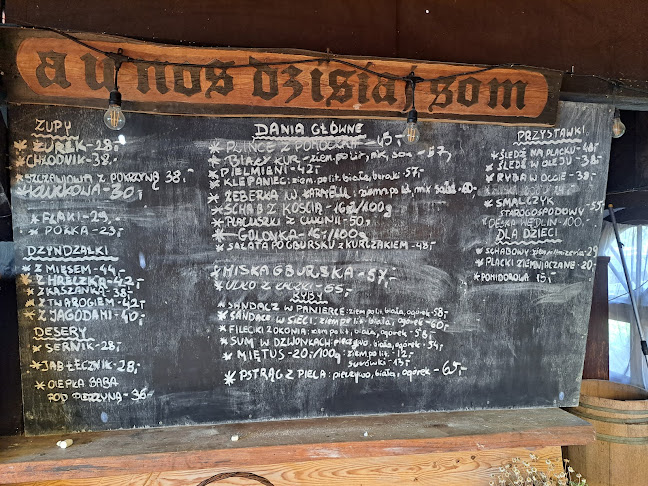 a u nos dzisiaj som
ZUPY
* ŻUREK - 28,-
* CHŁODNIK - 38,-
* SZCZAWIOWA Z POKRZYWĄ 38,-
30,-
* FLAKI - 29,-
* POLKA - 23,-
DZYNDZAŁKI
* Z MIĘSEM - 44,-
* Z HRECZKĄ - 42,-
* Z KASZANKĄ - 38,-
* Z TWAROGIEM - 42,-
* Z JAGODAMI - 40,-
DESERY
* SERNIK - 28,-
* JABŁECZNIK - 28,-
* CIEPŁA BABA
POD PIERZYNĄ - 36
DANIA GŁÓWNE
* 45,-
* BIAŁY KUR - ziem. polit, mix, sos - 57,-
* PIELMIENI - 42,-
* KLEPANIEC: ziem. polit, biała, buraki 57,-
* ŻEBERKA W KARMELU: ziemn. pol. mix sałat - 60,-
* SCHAB Z KOŚCIĄ - 16,-/100g
* PLACUSZKI Z CUKINII - 50,-
* GOLONKA - 16,-/100g
* SAŁATA PO GBURSKU Z KURCZAKIEM - 48,-
* MISKA GBURSKA - 57,-
* UDKO Z KACZKI - 65,-
RYBY
* SANDACZ W PANIERCE: ziem. polit. biała, ogórek - 58,-
* SANDACZ W SIECI: ziem. polit. biała, ogórek - 60,-
* FILECIKI Z OKONIA: ziem, polit, biała, ogórek - 58,-
* SUM W DZWONKACH: pieczywo, biała, ogórek - 54,-
* MIĘTUS - 20,-/100g: ziem. polit. - 12,-
surówki - 13,-
* PSTRĄG Z PIECA: pieczywo, biała, ogórek - 65,-
PRZYSTAWKI
* ŚLEDŹ NA PLACKU - 48,-
* ŚLEDŹ W OLEJU - 38,-
* RYBA W OCCIE - 38,-
* SMALCZYK
STAROGOSPODOWY - 55,-
DESKA WĘDLIN - 100,-
DLA DZIECI
* SCHABOWY: 29
* PLACKI ZIEMNIACZANE - 20,-
* POMIDOROWA 15,-